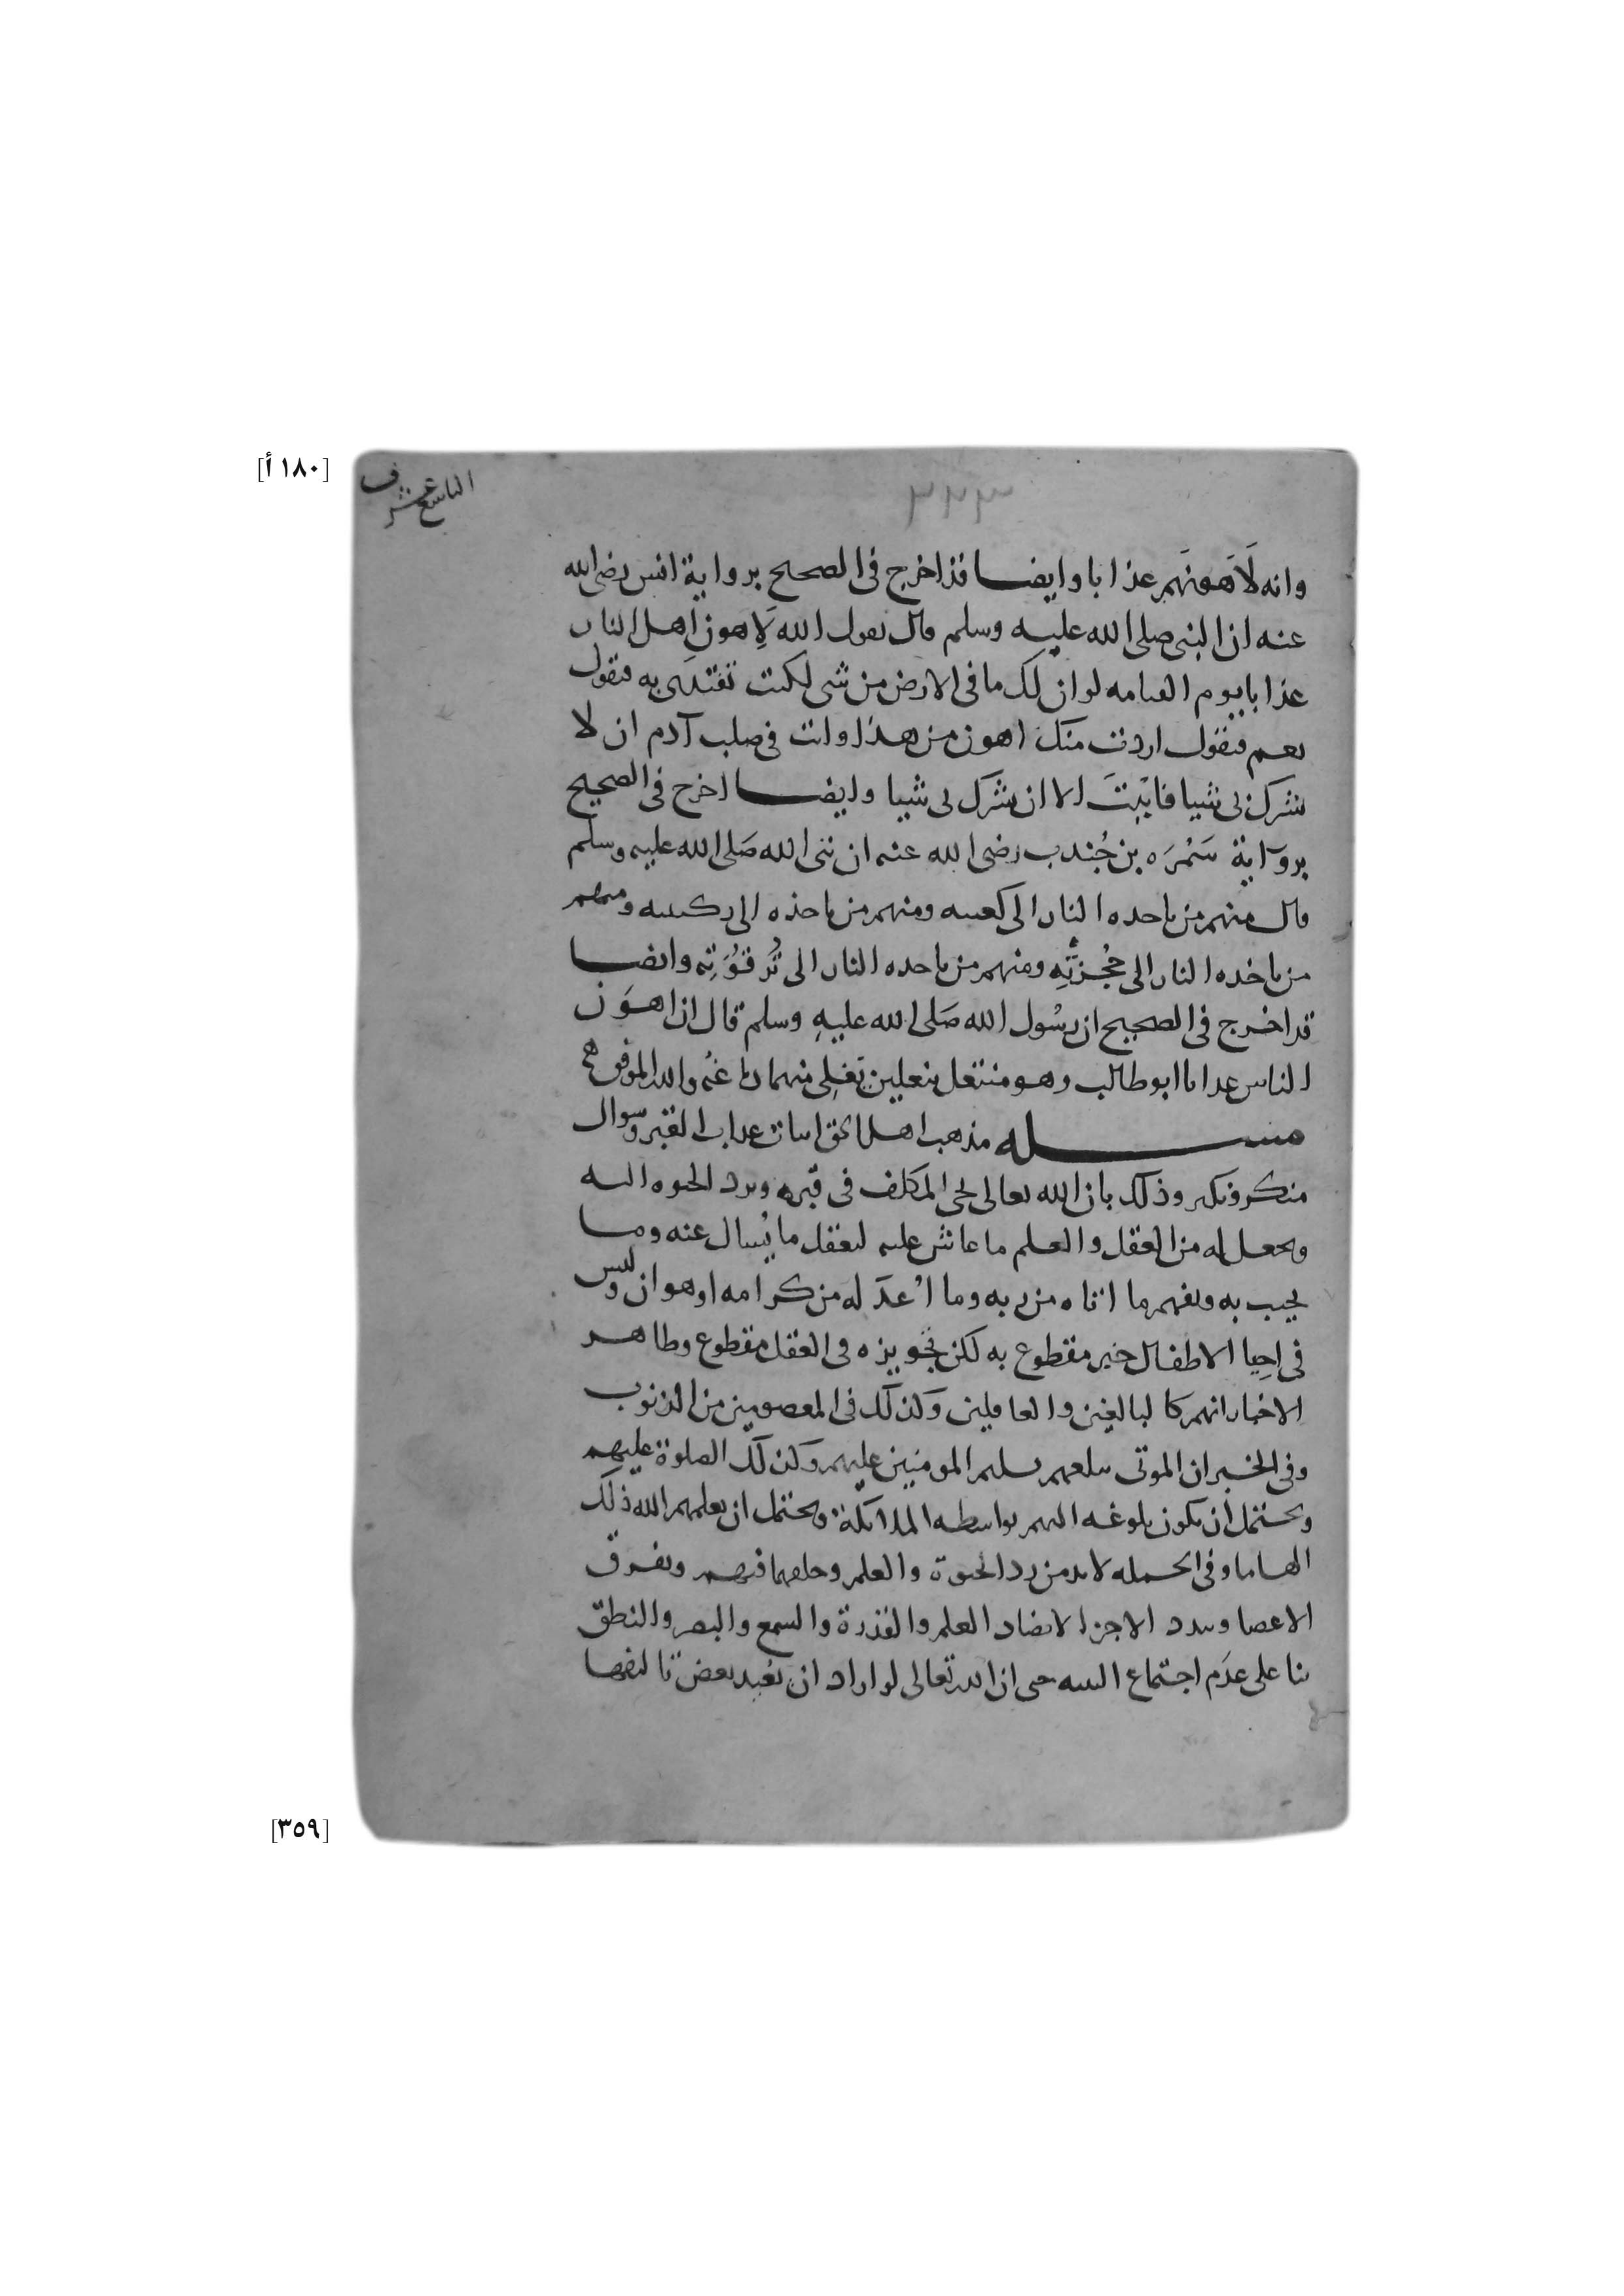 [١٨٠ أ]
التاسع عشر ف
٣٢٣
وانه لَاَهونَهم عذابا وايضا فقد اخرج فى الصحيح برواية انس رضى الله
عنه ان النبى صلى الله عليه وسلم قال يقول الله لِاَهون اَهل النار
عذابا يوم القيامه لو ان لك ما فى الارض من شى لكنت تفتدى به فيقول
نعم فيقول اردت منك اهون من هذا وانت فى صلب آدم ان لا
تشرك بى شيا فابَيْتَ الا ان تشرك بى شيا وايضا اخرج فى الصحيح
برواية سَمُرَه بن جُندب رضى الله عنه ان نبى الله صَلى الله عليه وسلم
قال منهم من ياخذه النار الى كعبيه ومنهم من ياخذه الى ركبتيه ومنهم
من ياخذه النار الى حُجْزَتِهِ ومنهم من ياخذه النار الى تُرقُوَتِه وايضا
قد اخرج فى الصحيح ان رسُول الله صَلى الله عليهِ وسلم قال ان اهوَن
الناس عذابا ابو طالب وهو منتعل بنعلين تغلِى منهما دماغُه والله الموفق
مسله مذهب اهل الحق اثبات عذاب القبر وسوال
منكر ونكير وذلك بان الله تعالى يحيى المكلف فى قبره ويرد الحيوه اليه
ويجعل له من العقل والعلم ما عاش عليه ليعقل ما يُسال عنه وما
يجيب به ويفهم ما اتاه من ربه وما اُعدَ له من كرامه او هوان وليس
فى اِحيا الاطفال خبر مقطوع به لكن تجويزه فى العقل مقطوع وظاهر
الاخبار انهم كالبالغين والعاقلين وكذلك فى المعصومين من الذنوب
وفى الخبر ان الموتى يبلغهم تسليم المومنين عليهم وكذلك الصلوة عليهم
ويحتمل ان يكون بلوغه اليهم بواسطه الملائكة ويحتمل ان يعلمهم الله ذلك
الهاما وفى الجمله لا بد من رد الحيوة والعلم وخلقهما فيهم وتفرق
الاعضا وتبدد الاجزا لا يضاد العلم والقدرة والسمع والبصر والنطق
بنا على عدَم اجتماع البنيه حتى ان الله تعالى لو اراد ان يعيد بعض تاليفها
[٣٥٩]